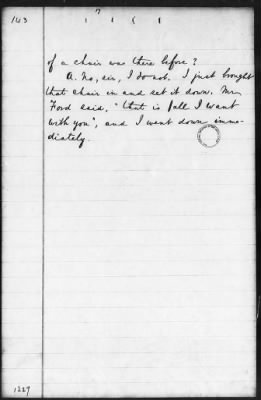 163
7
1 1 6 1
of a chair was there before?
A. No, sir, I do not. I just brought
that chair in and set it down. Mr.
Ford said, "that is all I want
with you", and I went down imme-
diately.
1229